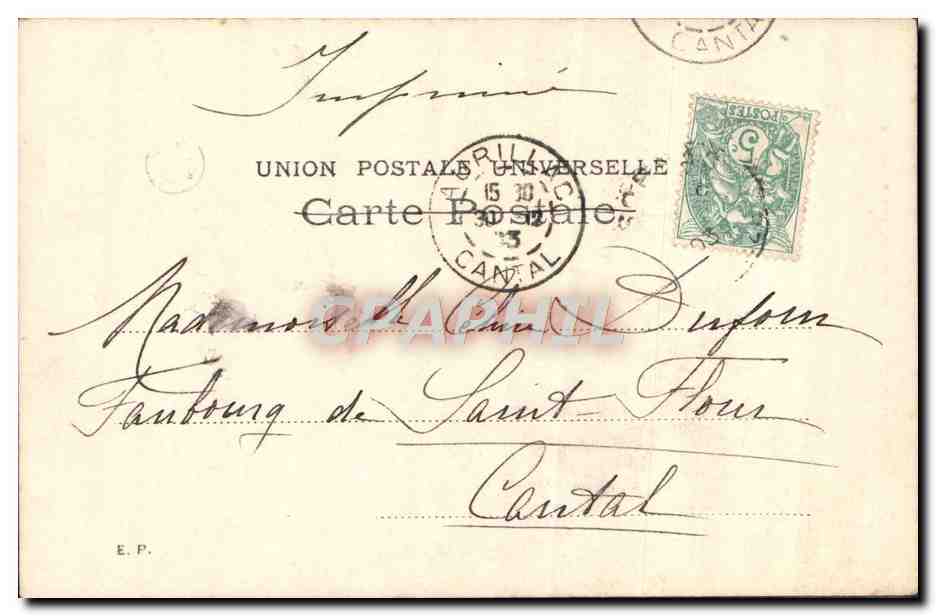 CANTAL
Imprimé
POSTES
5
UNION POSTALE UNIVERSELLE
Carte Postale.
AURILLAC
15 30
30 12
03
CANTAL
CPAPHIL
Mademoiselle Céline Dufour
Faubourg de Saint-Flour
Cantal
E. P.